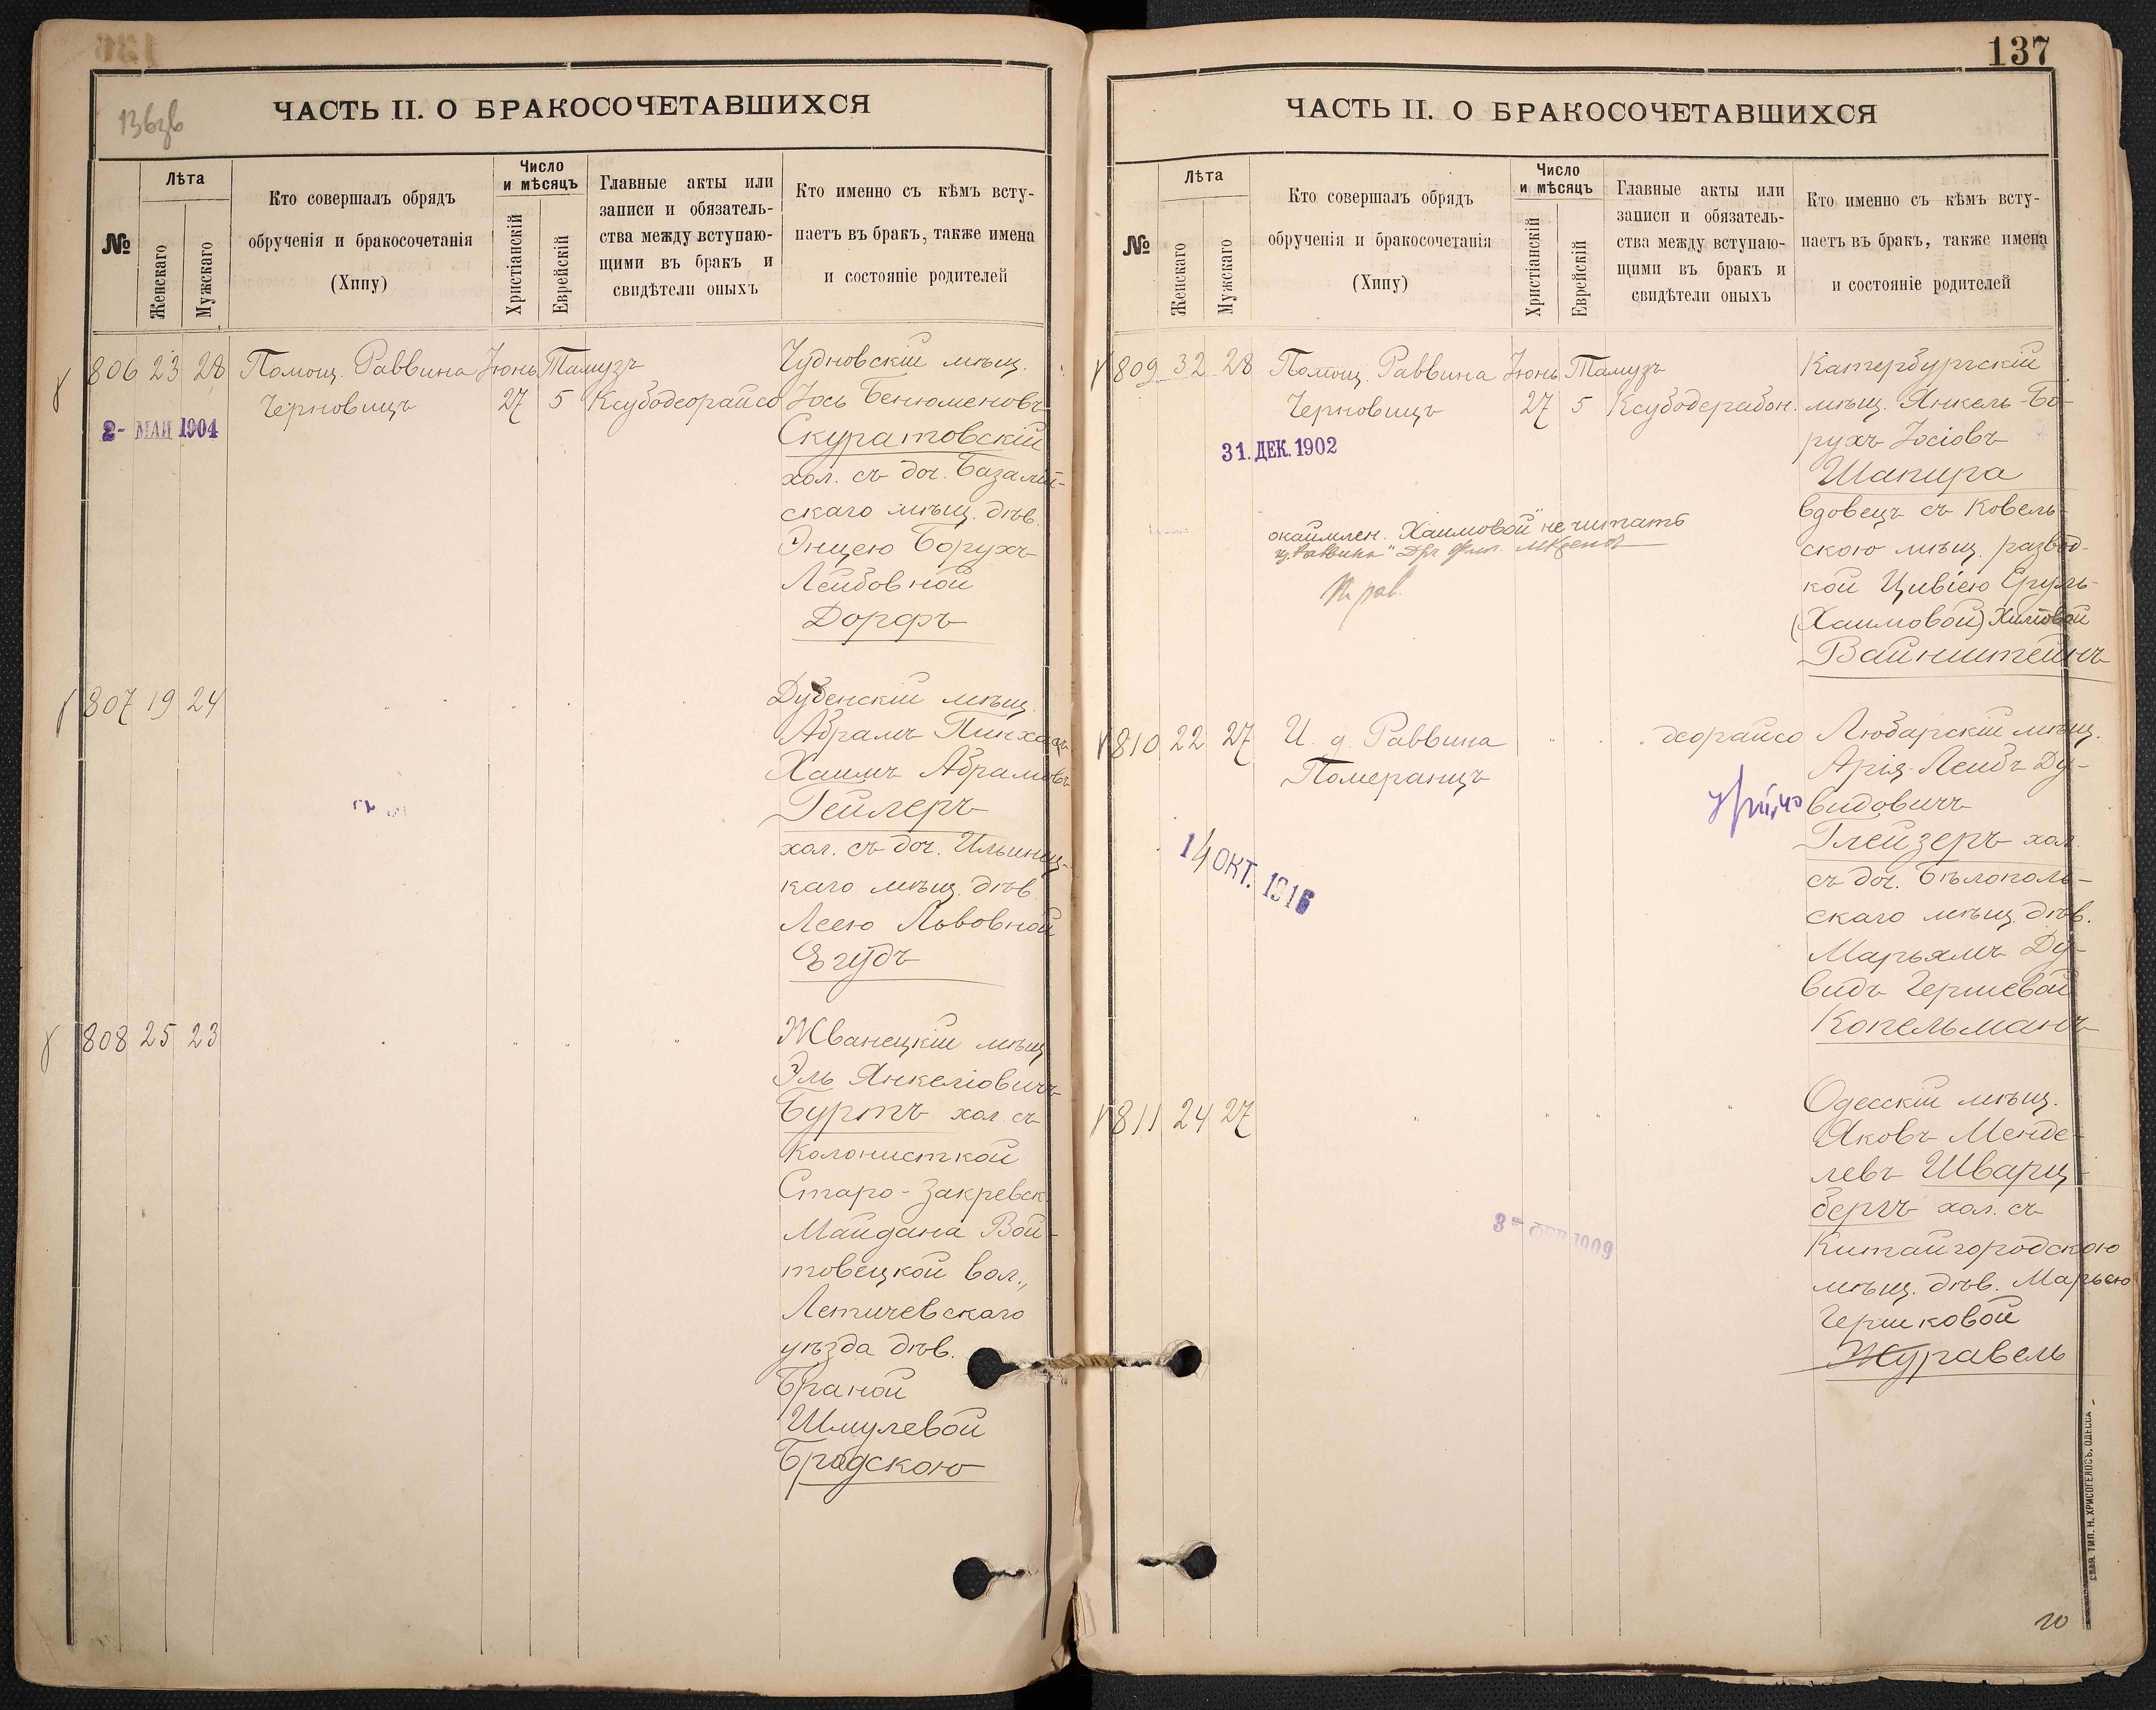 136зв
ЧАСТЬ II. О БРАКОСОЧЕТАВШИХСЯ
№
Лѣта
Женскаго
Мужскаго
Кто совершалъ обрядъ
обрученія и бракосочетанія
(Хипу)
Число
и мѣсяцъ
Христіанскій
Еврейскій
Главные акты или
записи и обязатель-
ства между вступаю-
щими въ бракъ и
свидѣтели оныхъ
Кто именно съ кѣмъ всту-
паетъ въ бракъ, также имена
и состояніе родителей
806 23 28 Помощ. Раввина Іюнь Тамузъ
Черновицъ 27 5 Ксубодеорайсо
2- МАЙ 1904
Чудновскій мѣщ.
Іось Бенюменовъ
Скуратовскій
хол. съ доч. Базалій-
скаго мѣщ. дѣв.
Энцею Борухъ
Лейбовной
Дорфъ
807 19 24
Дубенскій мѣщ.
Абрамъ Пинхасъ
Хаимъ Абрамовъ
Гейлеръ
хол. съ доч. Ильинец-
каго мѣщ. дѣв.
Леею Львовной
Егудъ
808 25 23
Жванецкій мѣщ.
Эль Янкеліовичъ
Буртъ хол. съ
колонисткой
Старо-Закревск.
Майдана Вой-
товецкой вол.,
Летичевскаго
уѣзда дѣв.
Браной
Шмулевой
Бродскою
137
ЧАСТЬ II. О БРАКОСОЧЕТАВШИХСЯ
№
Лѣта
Женскаго
Мужскаго
Кто совершалъ обрядъ
обрученія и бракосочетанія
(Хипу)
Число
и мѣсяцъ
Христіанскій
Еврейскій
Главные акты или
записи и обязатель-
ства между вступаю-
щими въ бракъ и
свидѣтели оныхъ
Кто именно съ кѣмъ всту-
паетъ въ бракъ, также имена
и состояніе родителей
809 32 28 Помощ. Раввина Іюнь Тамузъ
Черновицъ 27 5 Ксубодерабон.
31. ДЕК. 1902
окаймлен. "Хаимовой" не читать
Катербургскій
мѣщ. Янкель-Бо-
рухъ Іосіовъ
Шапира
вдовецъ съ Ковель-
скою мѣщ. развод-
кой Цивіею Сруль-
(Хаимовой) Хаимовой
Вайнштейнъ
810 22 27 И. д. Раввина деорайсо
Померанцъ
14 ОКТ. 1916
Любарскій мѣщ.
Арія-Лейбъ Ду-
видовичъ
Глейзеръ хол.
съ доч. Бѣлополь-
скаго мѣщ. дѣв.
Марьямъ Ду-
видъ Гершевой
Копельманъ
811 24 27
3- ФЕВ 1909
Одесскій мѣщ.
Яковъ Менде-
левъ Шварц-
бергъ хол. съ
Китайгородскою
мѣщ. дѣв. Марьею
Гершковой
Журавель
СЛАВ. ТИП. Н. ХРИСОГЕЛОСЪ, ОДЕССА